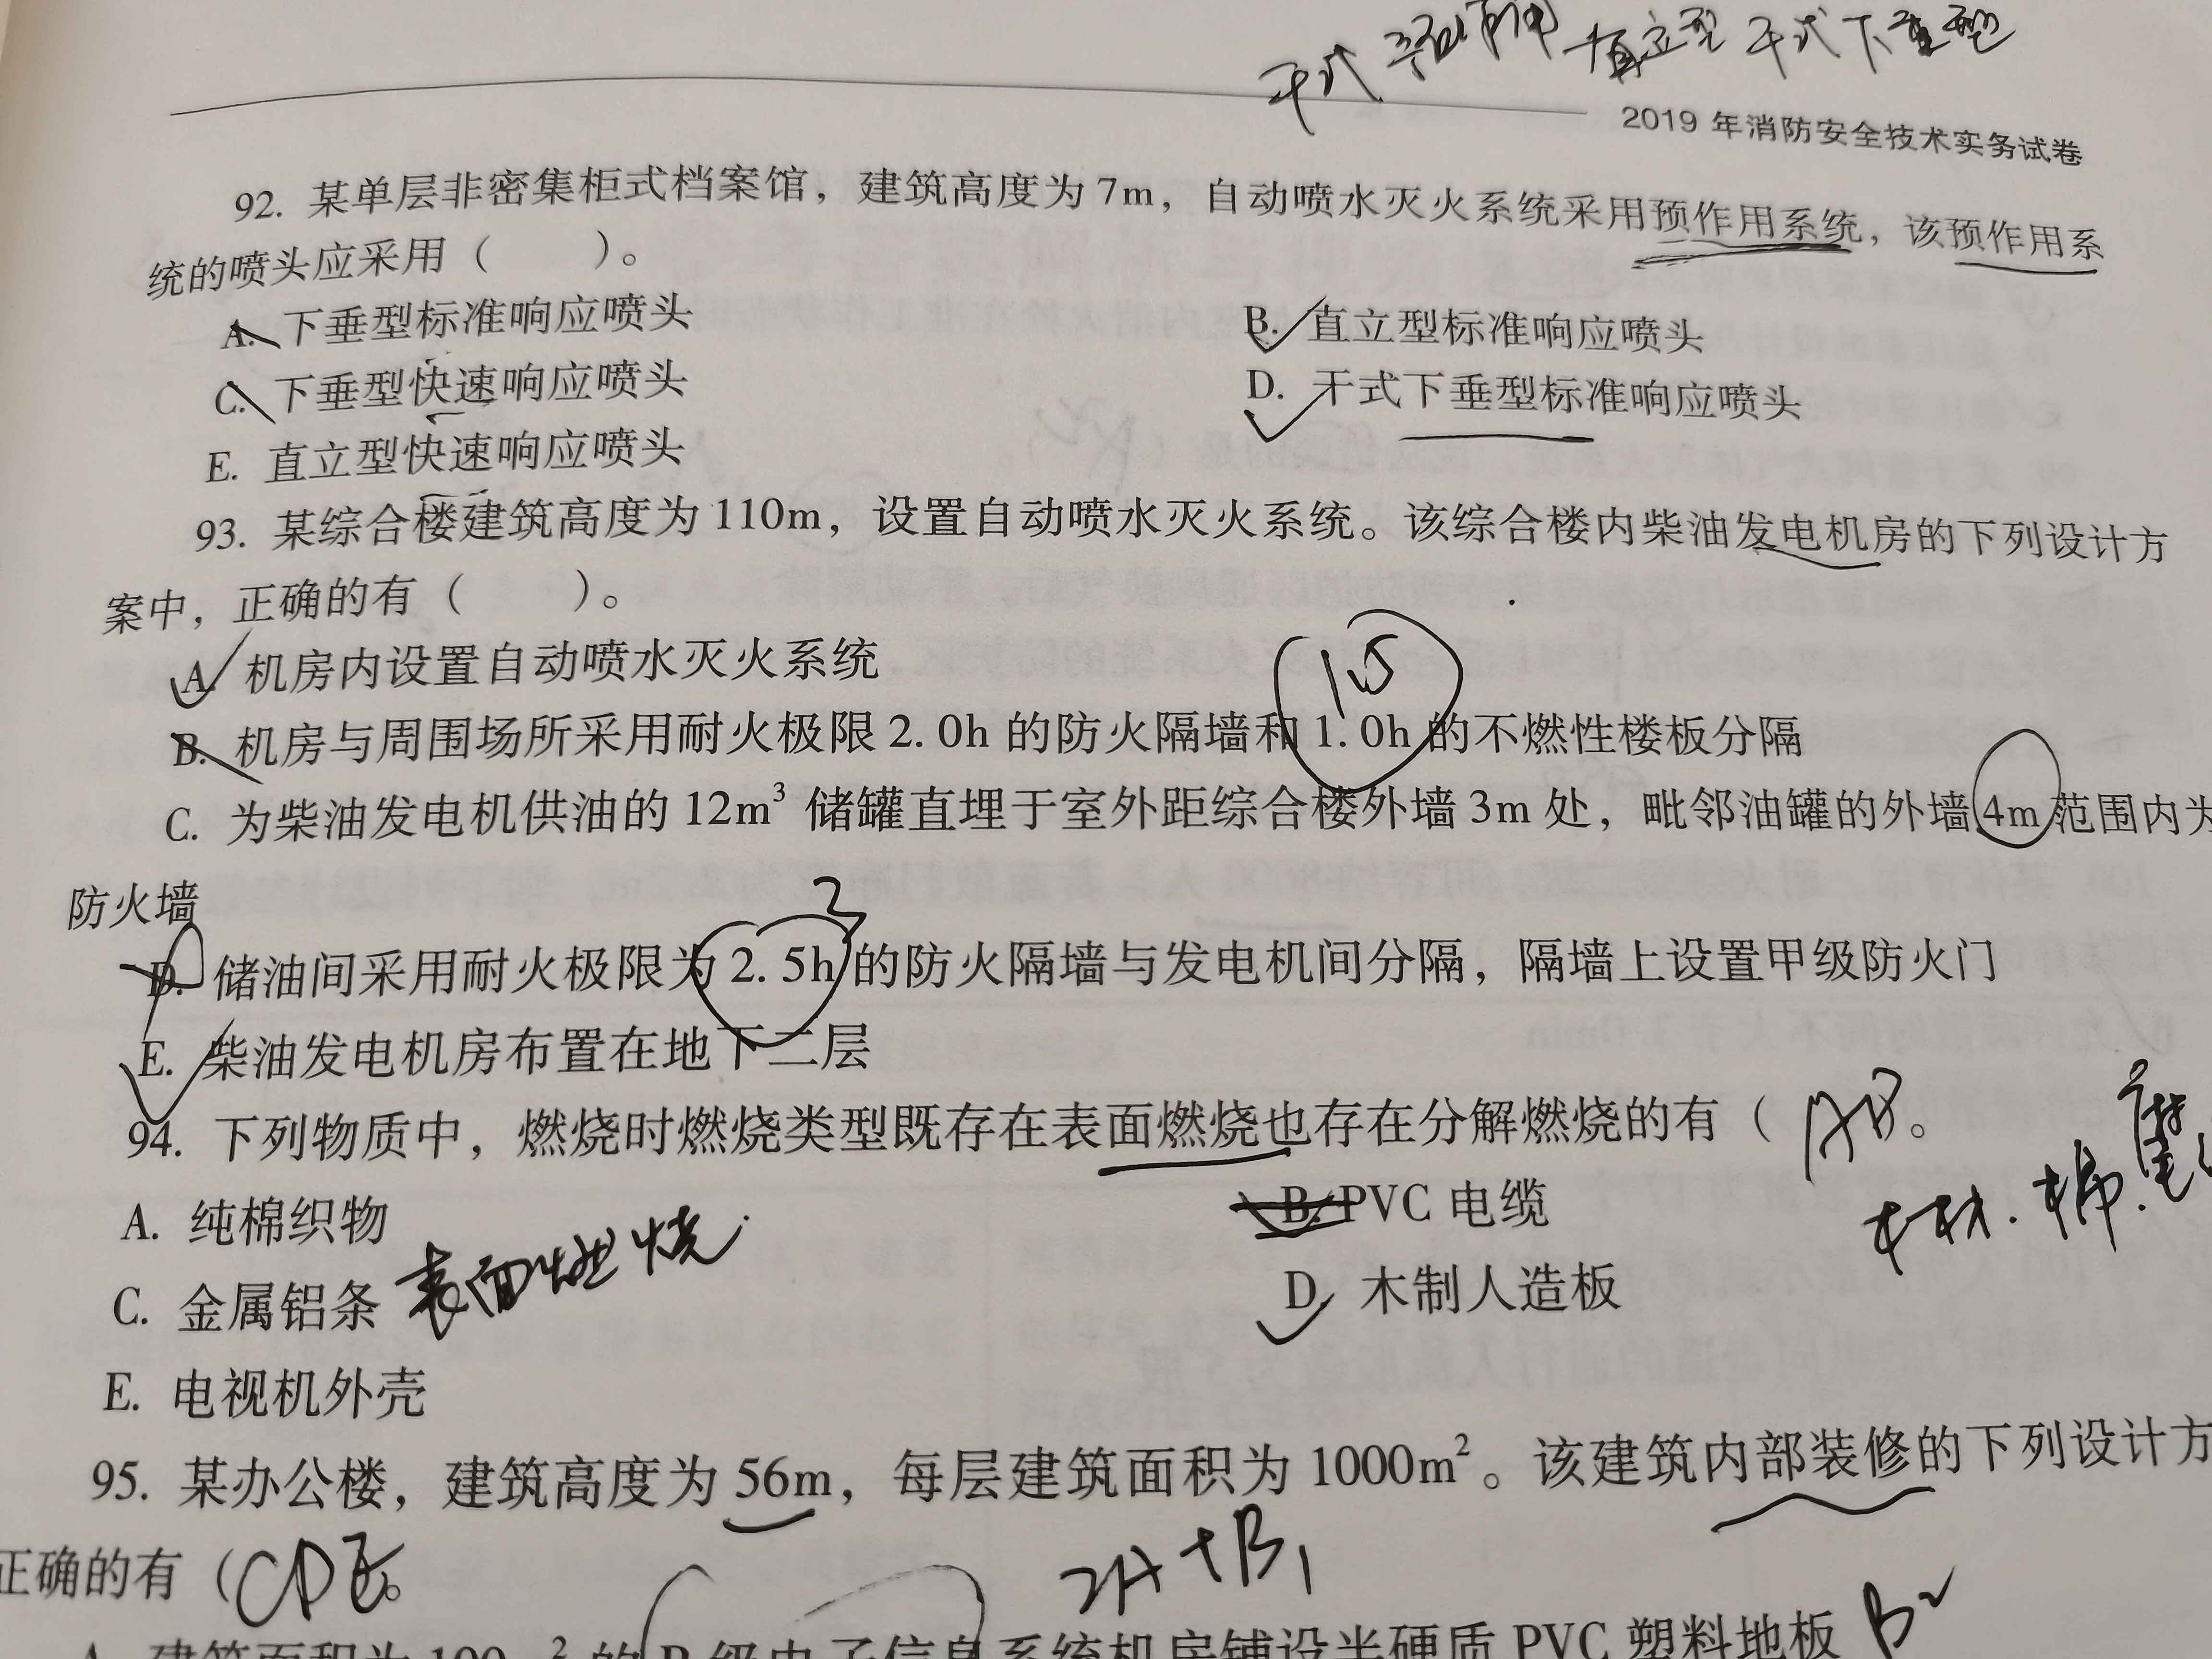 干式 预作用 直立型 干式下垂型
2019 年消防安全技术实务试卷
92. 某单层非密集柜式档案馆，建筑高度为 7m，自动喷水灭火系统采用预作用系统，该预作用系
统的喷头应采用（　　）。
A. 下垂型标准响应喷头
B. 直立型标准响应喷头
C. 下垂型快速响应喷头
D. 干式下垂型标准响应喷头
E. 直立型快速响应喷头
93. 某综合楼建筑高度为 110m，设置自动喷水灭火系统。该综合楼内柴油发电机房的下列设计方
案中，正确的有（　　）。
A. 机房内设置自动喷水灭火系统
1.5
B. 机房与周围场所采用耐火极限 2. 0h 的防火隔墙和 1. 0h 的不燃性楼板分隔
C. 为柴油发电机供油的 12m³ 储罐直埋于室外距综合楼外墙 3m 处，毗邻油罐的外墙 4m 范围内为
防火墙
3
D. 储油间采用耐火极限为 2. 5h 的防火隔墙与发电机间分隔，隔墙上设置甲级防火门
E. 柴油发电机房布置在地下二层
94. 下列物质中，燃烧时燃烧类型既存在表面燃烧也存在分解燃烧的有（ AD。
木材.棉.
A. 纯棉织物
B. PVC 电缆
C. 金属铝条 表面燃烧.
D. 木制人造板
E. 电视机外壳
95. 某办公楼，建筑高度为 56m，每层建筑面积为 1000m²。该建筑内部装修的下列设计方
正确的有（CDE。
2A+B₁
A. 建筑面积为 100m² 的 B 级电子信息系统机房铺设半硬质 PVC 塑料地板 B